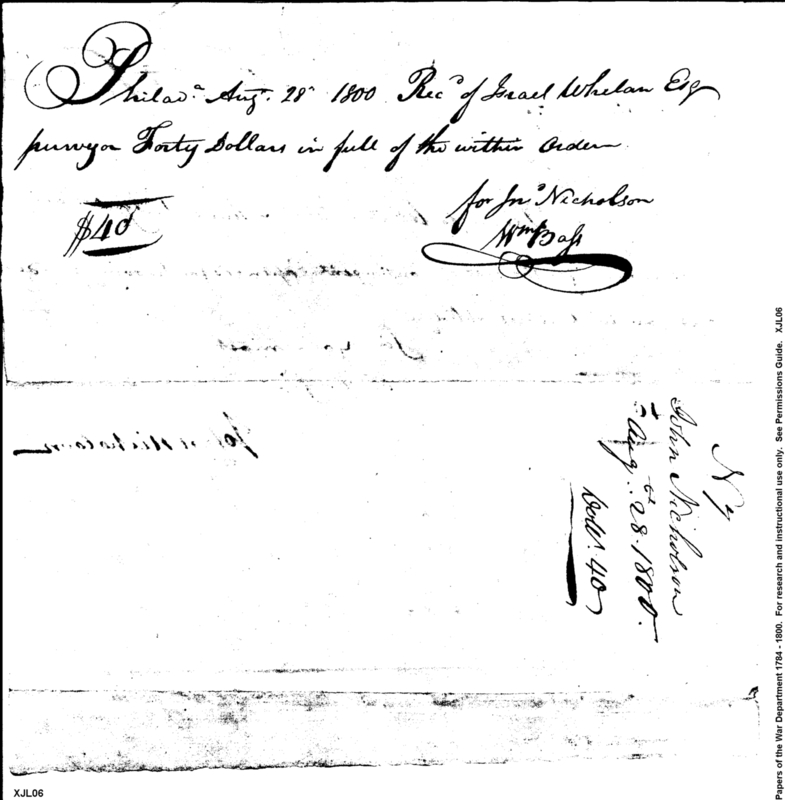 Philad.ª Aug.t 28th 1800 Rec.d of Israel Whelan Esq
purveyor Forty Dollars in full of the within Order
for Jn.o Nicholson
$40
Wm Bass
John Nicholson
Nº 4
John Nicholson
Aug.t 28.th 1800.
Doll.s 40
Papers of the War Department 1784 - 1800. For research and instructional use only. See Permissions Guide. XJL06
XJL06